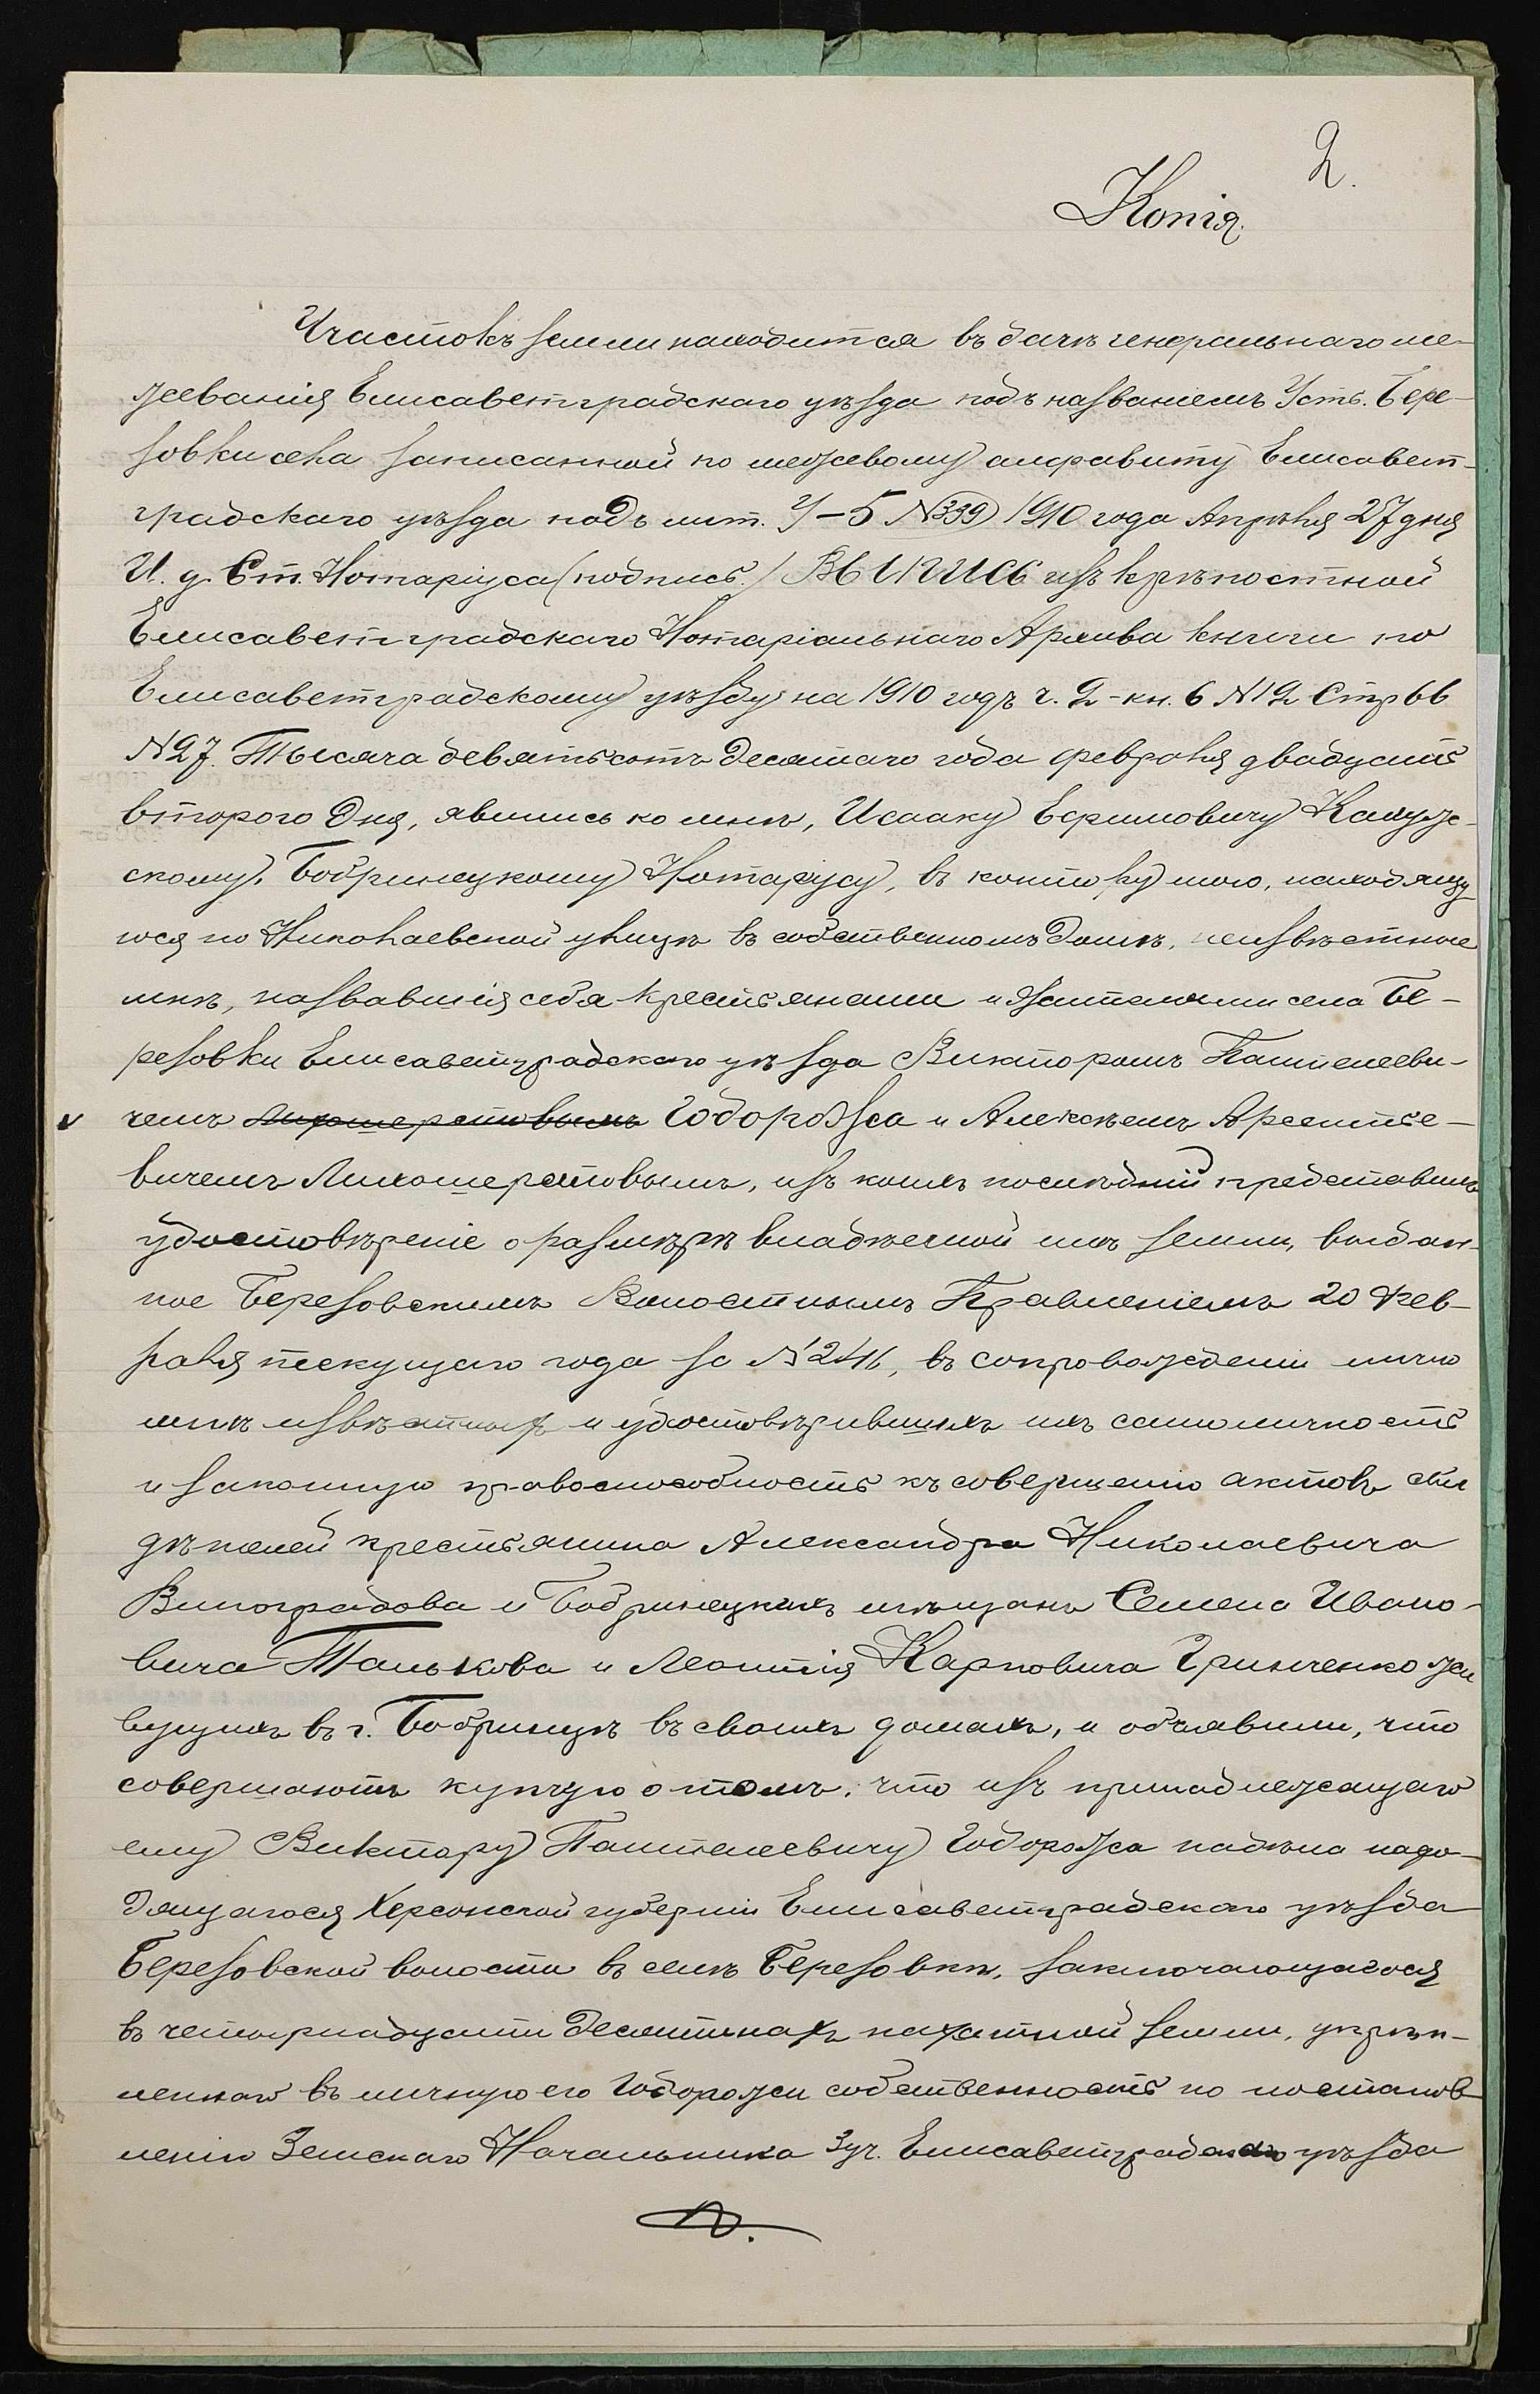 2.
Копія.
Участокъ земли находится въ дачѣ генеральнаго ме-
жеванія Елисаветградскаго уѣзда подъ названіемъ Усть. Бере-
зовки села записанной по межевому алфавиту Елисавет-
градскаго уѣзда подъ лит. У-5 №339) 1910 года Апрѣля 27 дня
И. д. Ст. Нотаріуса (подпись.) ВЫПИСЬ изъ крѣпостной
Елисаветградскаго Нотаріальнаго Архива книги по
Елисаветградскому уѣзду на 1910 годъ ч. 2-кн. 6 №12 Стр 66
№27. Тысяча девятьсотъ десятаго года февраля двадцать
второго дня, явились ко мнѣ, Исааку Ефимовичу Калуж-
скому, Бобринецкому Нотарусу, въ контору мою, находящу
юся по Николаевской улицѣ въ собственномъ домѣ, неизвѣстные
мнѣ, назвавшія себя крестьянами и жителями села Бе-
резовки Елисаветградскаго уѣзда Викторомъ Пантелееви-
чемъ Лихошерстовымъ Годорожа и Алексѣемъ Арсентье-
вичемъ Лихошерстовымъ, изъ коихъ послѣдній представилъ
удостовѣреніе о размѣрѣ владѣемой имъ земли, выдан-
ное Березовскимъ Волостнымъ Правленіемъ 20 Фев-
раля текущаго года за № 246, въ сопровожденіи лично
мнѣ извѣстныхъ и удостовѣрившихъ ихъ самоличность
и законную правоспособность къ совершенію актовъ сви
дѣтелей крестьянина Александра Николаевича
Виноградова и Бобринецкихъ мѣщанъ Семена Ивано-
вича Танькова и Леонтія Карповича Гринченко жи
вущихъ въ г. Бобринцѣ въ своихъ домахъ, и объявили, что
совершаютъ купчую о томъ, что изъ принадлежащаго
ему Виктору Пантелеевичу Годорожа надѣла нахо-
дящагося Херсонской губерніи Елисаветградскаго уѣзда
Березовской волости въ селѣ Березовкѣ, заключающагося
въ четырнадцати десятинахъ пахатной земли, укрѣп-
леннаго въ личную его Годорожи собственность по постанов-
ленію Земскаго Начальника 3 уч. Елисаветградскаго уѣзда